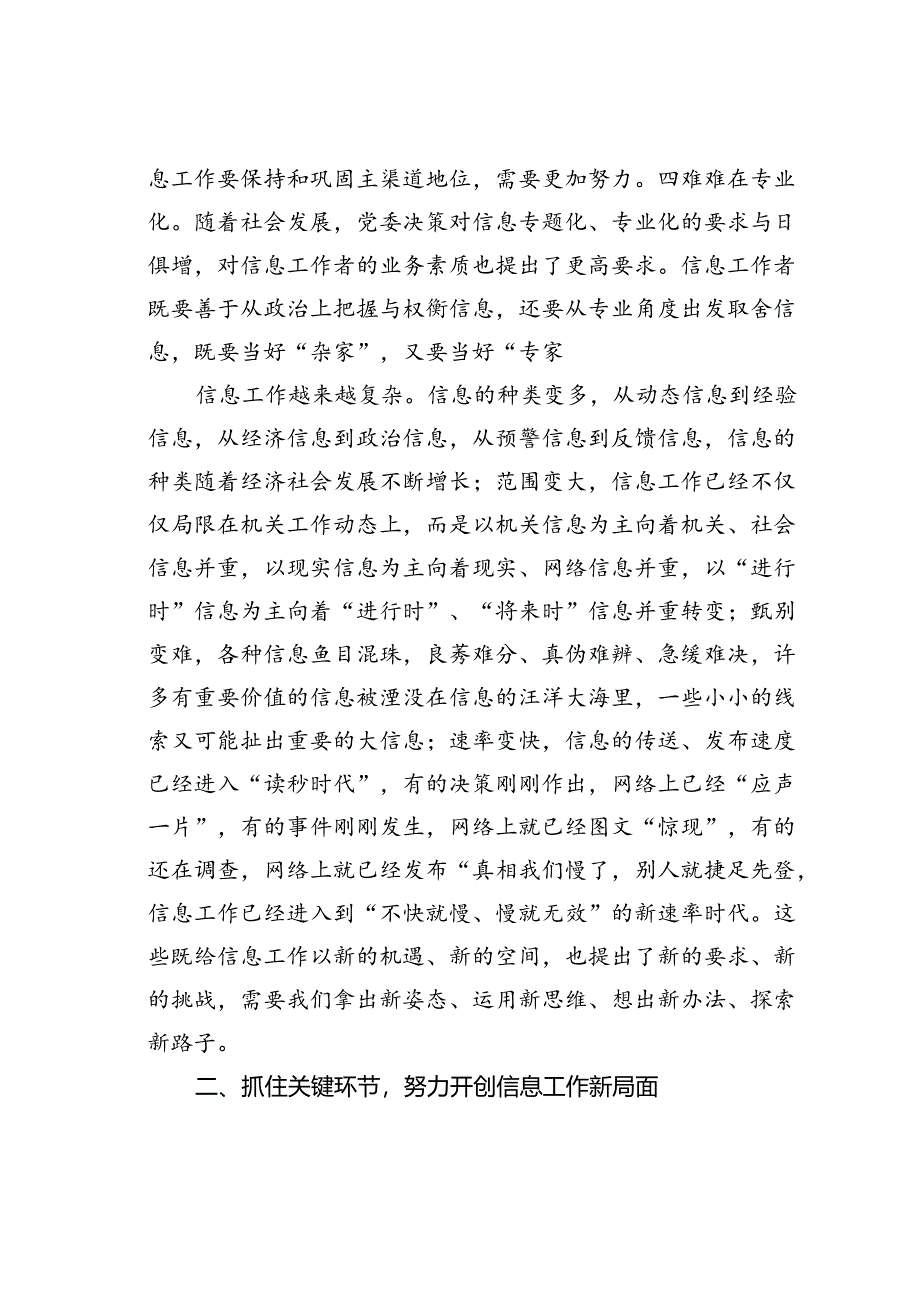 息工作要保持和巩固主渠道地位，需要更加努力。四难难在专业
化。随着社会发展，党委决策对信息专题化、专业化的要求与日
俱增，对信息工作者的业务素质也提出了更高要求。信息工作者
既要善于从政治上把握与权衡信息，还要从专业角度出发取舍信
息，既要当好“杂家”，又要当好“专家
信息工作越来越复杂。信息的种类变多，从动态信息到经验
信息，从经济信息到政治信息，从预警信息到反馈信息，信息的
种类随着经济社会发展不断增长；范围变大，信息工作已经不仅
仅局限在机关工作动态上，而是以机关信息为主向着机关、社会
信息并重，以现实信息为主向着现实、网络信息并重，以“进行
时”信息为主向着“进行时”、“将来时”信息并重转变；甄别
变难，各种信息鱼目混珠，良莠难分、真伪难辨、急缓难决，许
多有重要价值的信息被湮没在信息的汪洋大海里，一些小小的线
索又可能扯出重要的大信息；速率变快，信息的传送、发布速度
已经进入“读秒时代”，有的决策刚刚作出，网络上已经“应声
一片”，有的事件刚刚发生，网络上就已经图文“惊现”，有的
还在调查，网络上就已经发布“真相我们慢了，别人就捷足先登，
信息工作已经进入到“不快就慢、慢就无效”的新速率时代。这
些既给信息工作以新的机遇、新的空间，也提出了新的要求、新
的挑战，需要我们拿出新姿态、运用新思维、想出新办法、探索
新路子。
二、抓住关键环节，努力开创信息工作新局面